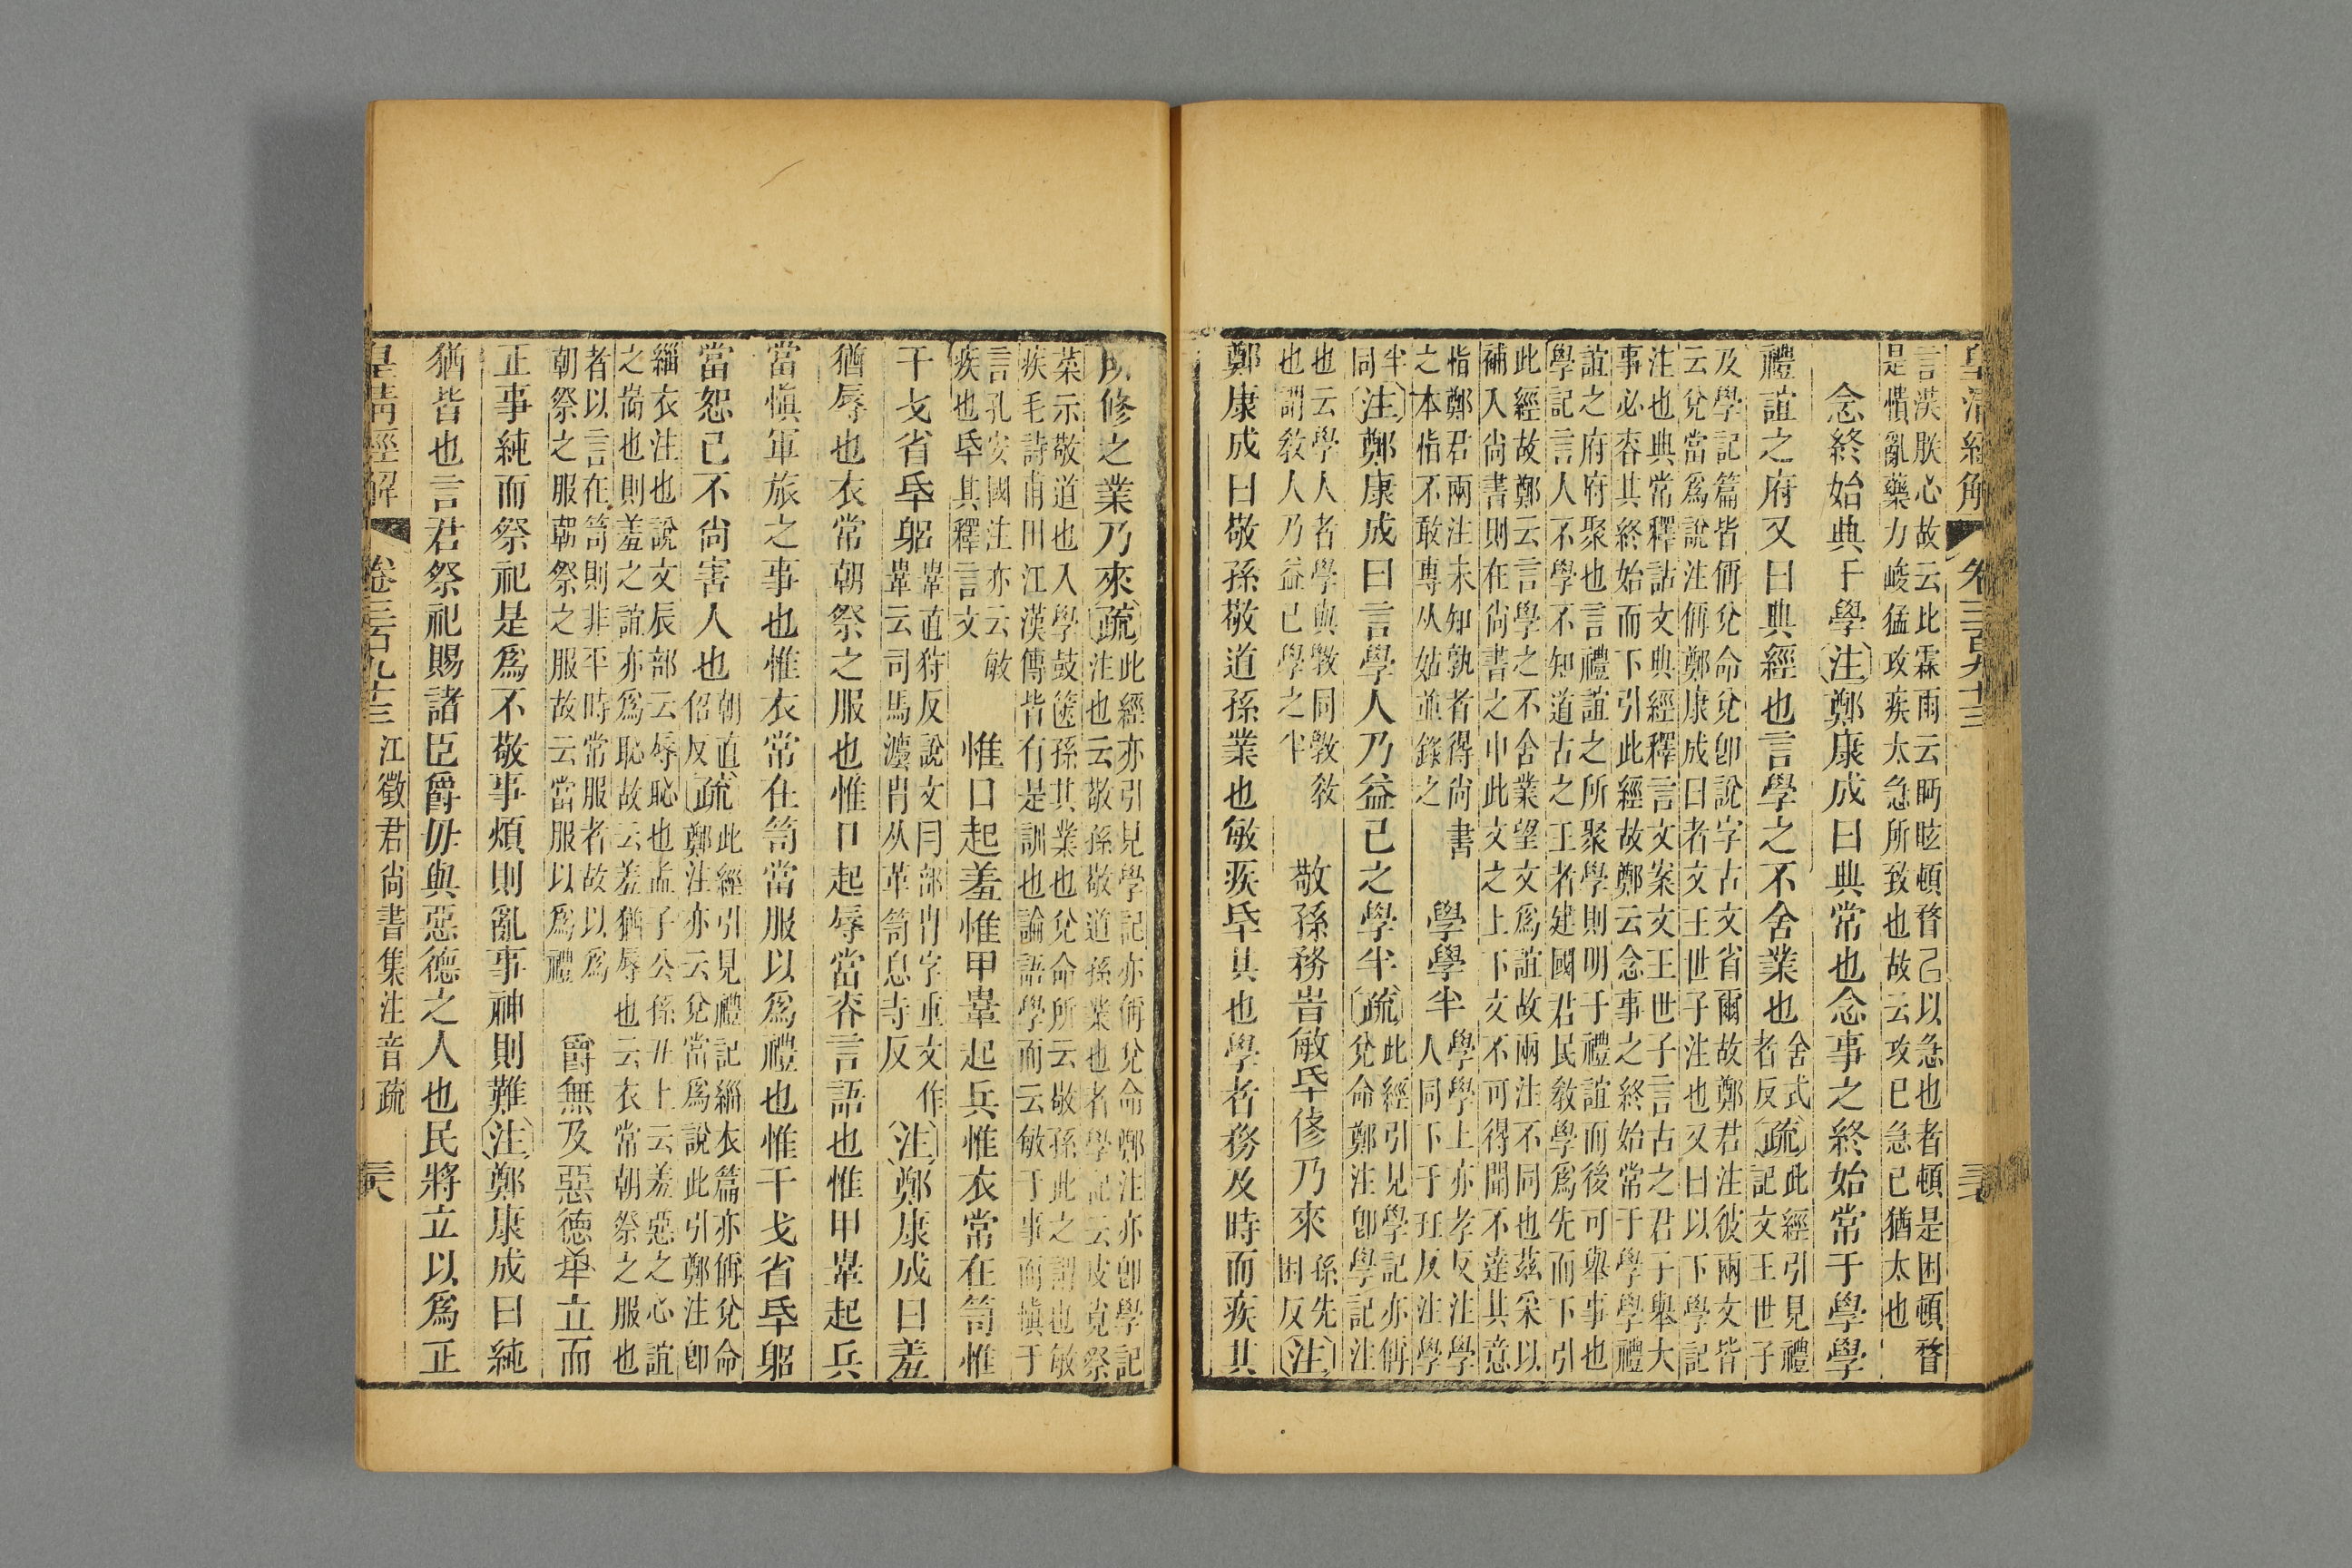 皇清經解 卷三百九十三
朕心故云此霖雨云眄眩頓瞀以急也者頓是困頓瞀
是憒亂藥力峻猛攻疾太急所致也故云攻已急已猶太也
念終始典于學〔注〕鄭康成曰典常也念事之終始常于學學
禮誼之府又曰典經也言學之不舍業也 舍式者反〔疏〕此經引見禮
記文王世子
及學記篇皆偁兌命兌卽說字古文省爾故鄭君注彼兩文皆
云兌當爲說注偁鄭康成曰者文王世子注也又曰以下學記
注也典常釋詁文典經釋言文案文王世子言古之君子舉大
事必㝐其終始而下引此經故鄭云念事之終始常于學學禮
誼之府府聚也言禮誼之所聚學則明于禮誼而後可舉事也
學記言人不學不知道古之王者建國君民敎學爲先而下引
此經故鄭云言學之不舍業望文爲誼故兩注不同也茲采以
補入尙書則在尙書之中此文之上下文不可得聞不達其意
恉鄭君兩注未知孰者得尙書
之本恉不敢專从姑並錄之
學學半 學學上亦孝反注學
人同下于玨反注學
半同〔注〕鄭康成曰言學人乃益己之學半〔疏〕此經引見學記亦偁
兌命鄭注卽學記注
也云學人者學與斆同斆敎
也謂敎人乃益已學之半
敬孫務旹敏氒修乃來 孫先困反〔注〕
鄭康成曰敬孫敬道孫業也敏疾氒其也學者務及時而疾其
所修之業乃來〔疏〕此經亦引見學記亦偁兌命鄭注亦卽學記
注也云敬孫敬道孫業也者學記云皮弁祭
菜示敬道也入學鼓篋孫其業也兌命所云敬孫此之謂也敏
疾毛詩甫田江漢傳皆有是訓也論語學而云敏于事而愼于
言孔安國注亦云敏
疾也氒其釋言文
惟口起羞惟甲𩊄起兵惟衣常在笥惟
干戈省氒躳 𩊄直狩反說文冃部冑字重文作
𩊄云司馬灋冑从革笥息寺反〔注〕鄭康成曰羞
猶辱也衣常朝祭之服也惟口起辱當㝐言語也惟甲𩊄起兵
當愼軍旅之事也惟衣常在笥當服以爲禮也惟干戈省氒躳
當恕己不尙害人也 朝直佋反〔疏〕此經引見禮記緇衣篇亦偁兌命
鄭注亦云兌當爲說此引鄭注卽
緇衣注也說文辰部云辱恥也孟子公孫丑上云羞惡之心誼
之耑也則羞之誼亦爲恥故云羞猶辱也云衣常朝祭之服也
者以言在笥則非平時常服者故以爲
朝祭之服朝祭之服故云當服以爲禮
爵無及惡德立而
正事純而祭祀是爲不敬事煩則亂事神則難〔注〕鄭康成曰純
猶皆也言君祭祀賜諸臣爵毋與惡德之人也民將立以爲正
皇清經解 卷三百九十三 江徵君尙書集注音疏 三六